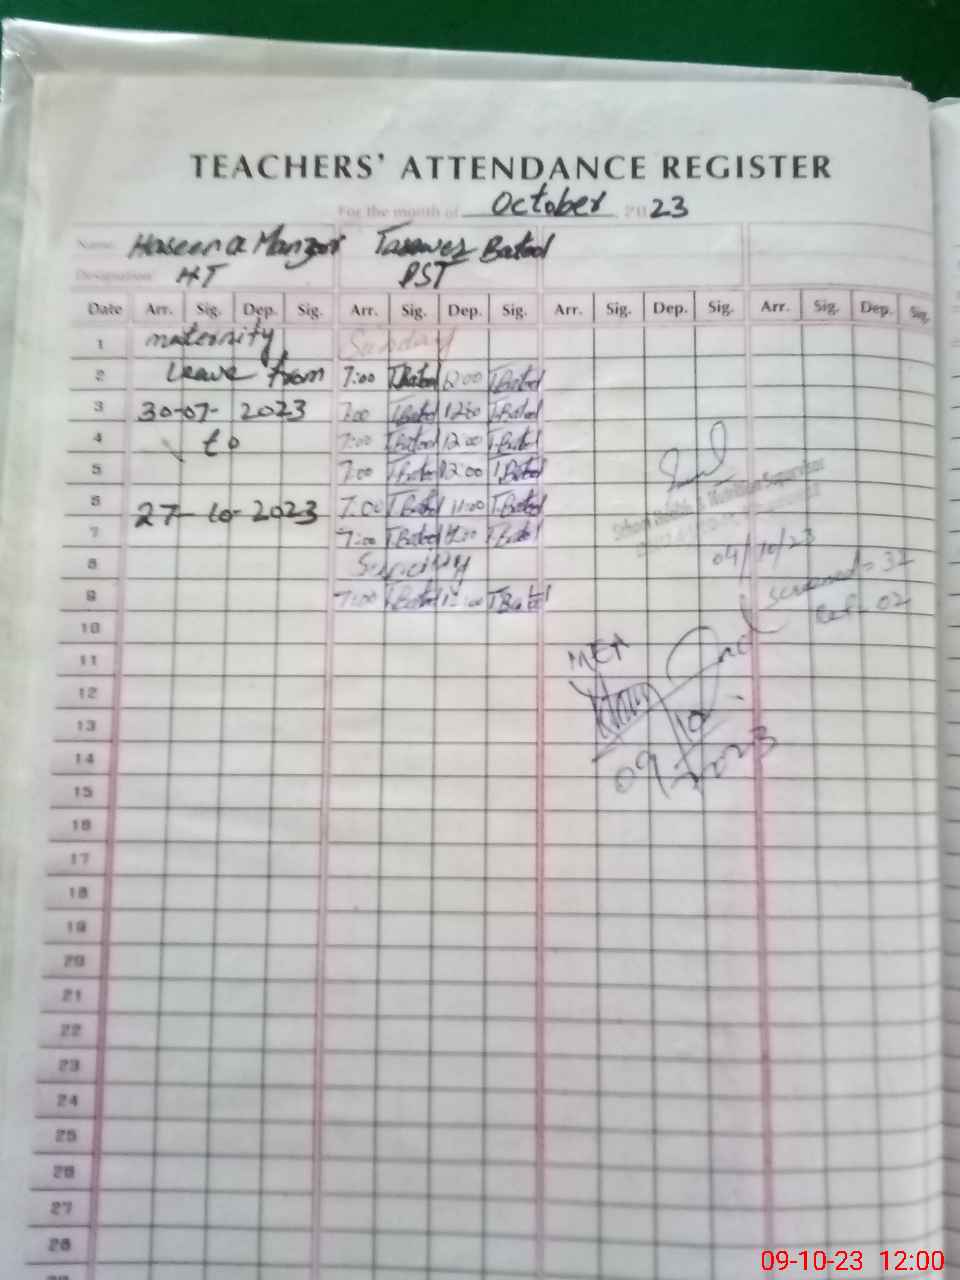 TEACHERS' ATTENDANCE REGISTER
For the month of October, 2023
Name Haseena Manzoor Tasawer Batool
Designation HT PST
Date Arr. Sig. Dep. Sig. Arr. Sig. Dep. Sig. Arr. Sig. Dep. Sig. Arr. Sig. Dep. Sig.
1 maternity Sunday
2 Leave from 7:00 T.Batool 12:00 T.Batool
3 30-07-2023 7:00 T.Batool 12:00 T.Batool
4 to 7:00 T.Batool 12:00 T.Batool
5 7:00 T.Batool 12:00 T.Batool
6 27-10-2023 7:00 T.Batool 11:00 T.Batool
7 7:00 T.Batool T.Batool
School Health & Nutrition Supervisor
04/10/23
8 Sunday
Screened = 32
9 7:00 T.Batool 12:00 T.Batool
Ref = 02
10
11 MEA
12
13
14 09/10/2023
15
16
17
18
19
20
21
22
23
24
25
26
27
28
09-10-23 12:00